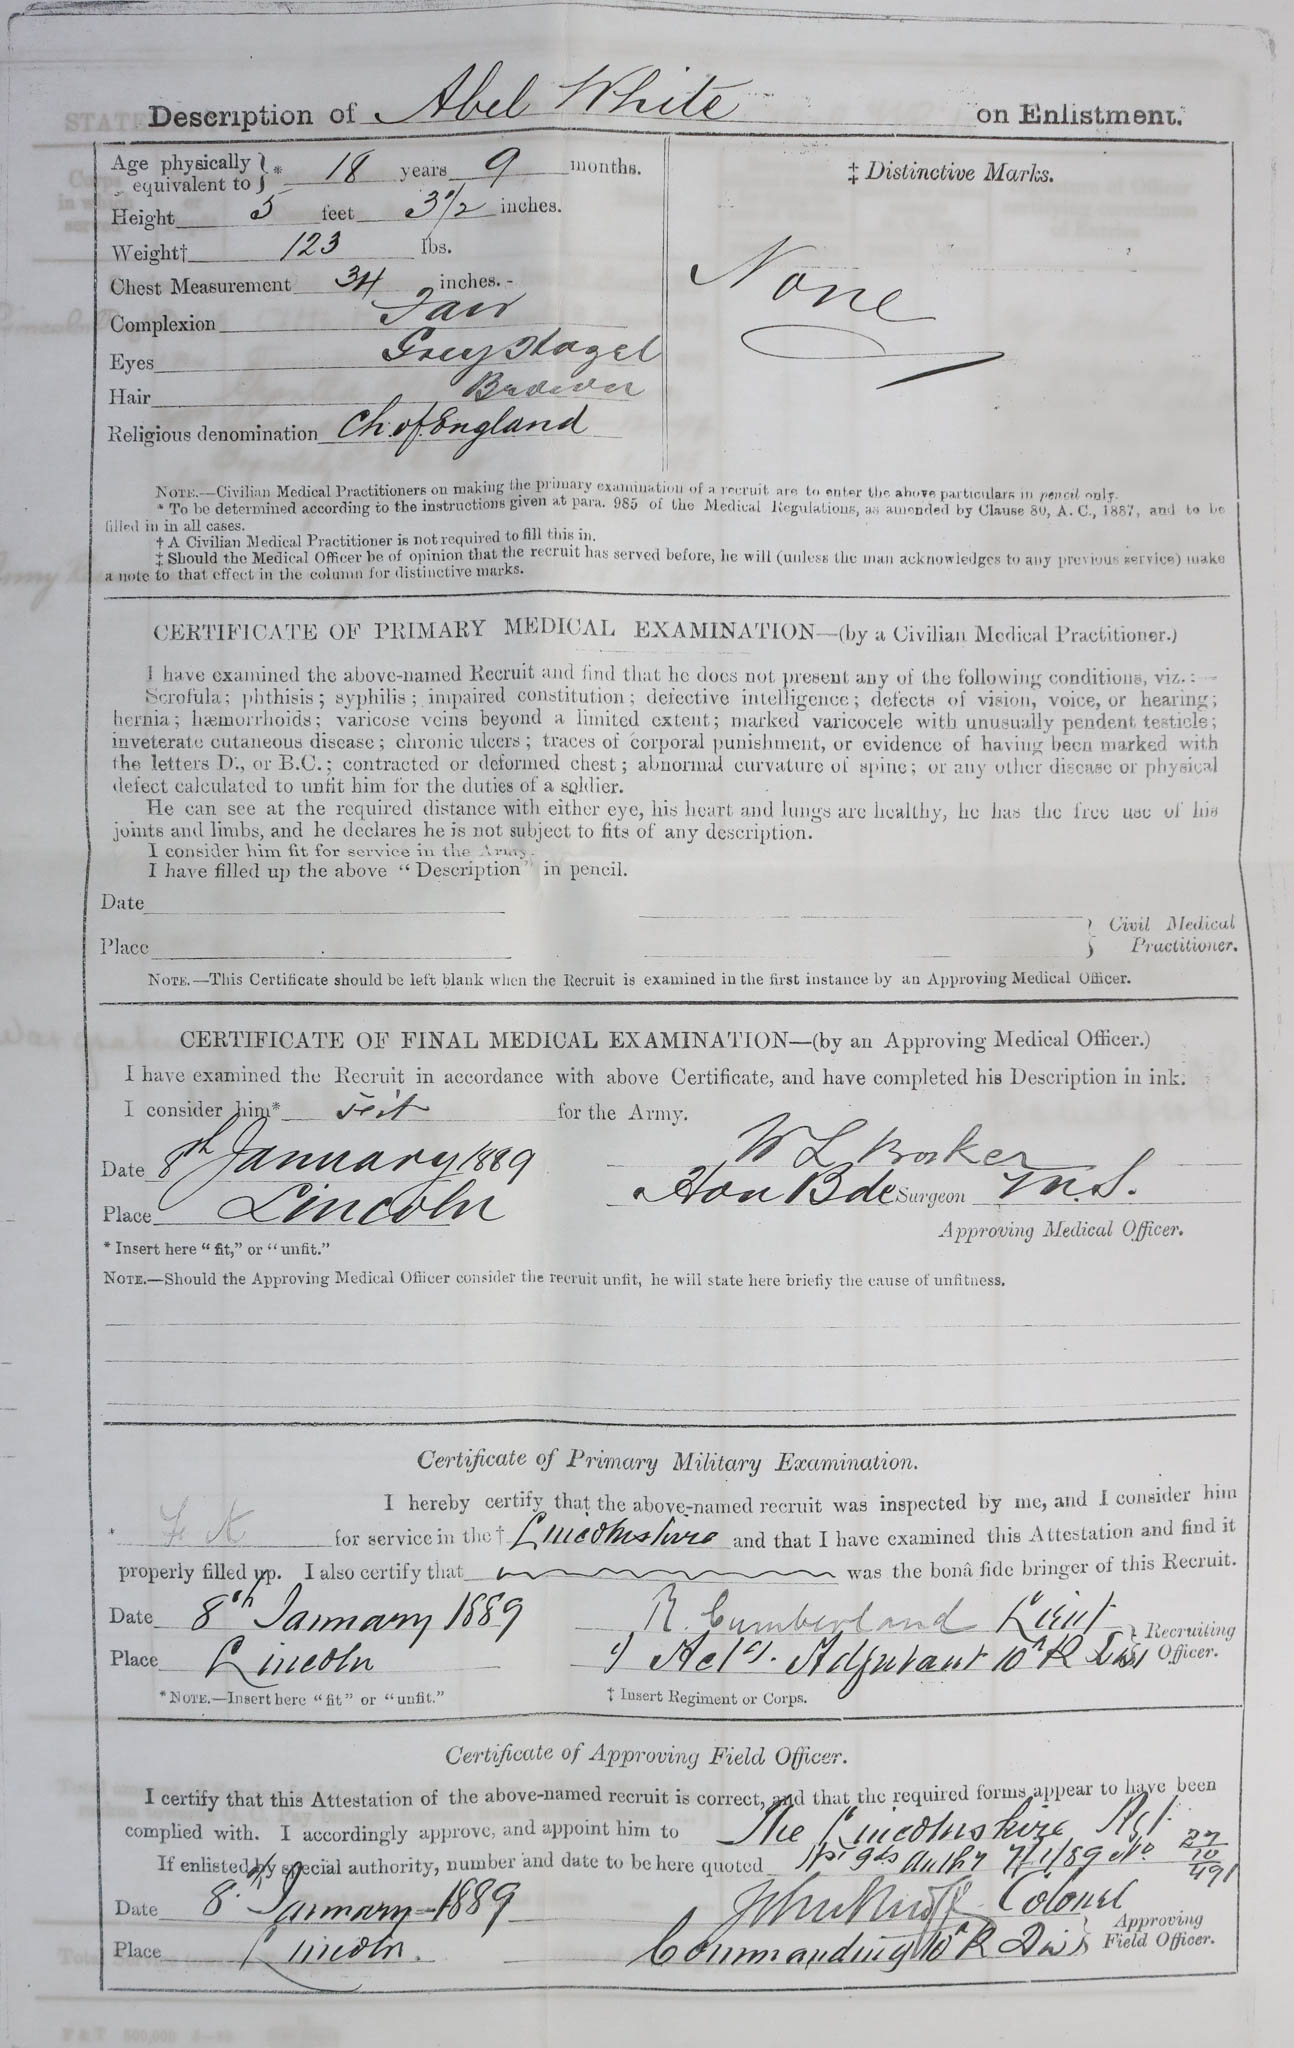 Description of Abel White on Enlistment.
Age physically equivalent to }* 18 years 9 months.
Height 5 feet 3 1/2 inches.
Weight† 123 lbs.
Chest Measurement 34 inches.
Complexion Fair
Eyes Grey Hazel
Hair Brown
Religious denomination Ch. of England
‡ Distinctive Marks.
None
NOTE.—Civilian Medical Practitioners on making the primary examination of a recruit are to enter the above particulars in pencil only.
* To be determined according to the instructions given at para. 985 of the Medical Regulations, as amended by Clause 80, A. C., 1887, and to be
filled in in all cases.
† A Civilian Medical Practitioner is not required to fill this in.
‡ Should the Medical Officer be of opinion that the recruit has served before, he will (unless the man acknowledges to any previous service) make
a note to that effect in the column for distinctive marks.
CERTIFICATE OF PRIMARY MEDICAL EXAMINATION—(by a Civilian Medical Practitioner.)
I have examined the above-named Recruit and find that he does not present any of the following conditions, viz.:—
Scrofula; phthisis; syphilis; impaired constitution; defective intelligence; defects of vision, voice, or hearing;
hernia; hæmorrhoids; varicose veins beyond a limited extent; marked varicocele with unusually pendent testicle;
inveterate cutaneous disease; chronic ulcers; traces of corporal punishment, or evidence of having been marked with
the letters D., or B.C.; contracted or deformed chest; abnormal curvature of spine; or any other disease or physical
defect calculated to unfit him for the duties of a soldier.
He can see at the required distance with either eye, his heart and lungs are healthy, he has the free use of his
joints and limbs, and he declares he is not subject to fits of any description.
I consider him fit for service in the Army.
I have filled up the above "Description" in pencil.
Date
Place
Civil Medical
Practitioner.
NOTE.—This Certificate should be left blank when the Recruit is examined in the first instance by an Approving Medical Officer.
CERTIFICATE OF FINAL MEDICAL EXAMINATION—(by an Approving Medical Officer.)
I have examined the Recruit in accordance with above Certificate, and have completed his Description in ink.
I consider him* Fit for the Army.
Date 8th January 1889
W L
Place Lincoln
Hon Bde Surgeon M.S.
Approving Medical Officer.
* Insert here "fit," or "unfit."
NOTE.—Should the Approving Medical Officer consider the recruit unfit, he will state here briefly the cause of unfitness.
Certificate of Primary Military Examination.
I hereby certify that the above-named recruit was inspected by me, and I consider him
* Fit for service in the † Lincolnshire and that I have examined this Attestation and find it
properly filled up. I also certify that was the bonâ fide bringer of this Recruit.
Date 8th January 1889 R. Cumberland Lieut
Place Lincoln Actg. Adjutant 10th R Dist
Recruiting
Officer.
* NOTE.—Insert here "fit" or "unfit."
† Insert Regiment or Corps.
Certificate of Approving Field Officer.
I certify that this Attestation of the above-named recruit is correct, and that the required forms appear to have been
complied with. I accordingly approve, and appoint him to The Lincolnshire Rgt.
If enlisted by special authority, number and date to be here quoted Hd Qrs Authy 7/1/89 No 27/10/491
Date 8th January 1889 Colonel
Place Lincoln. Commanding 10th R Dist
Approving
Field Officer.